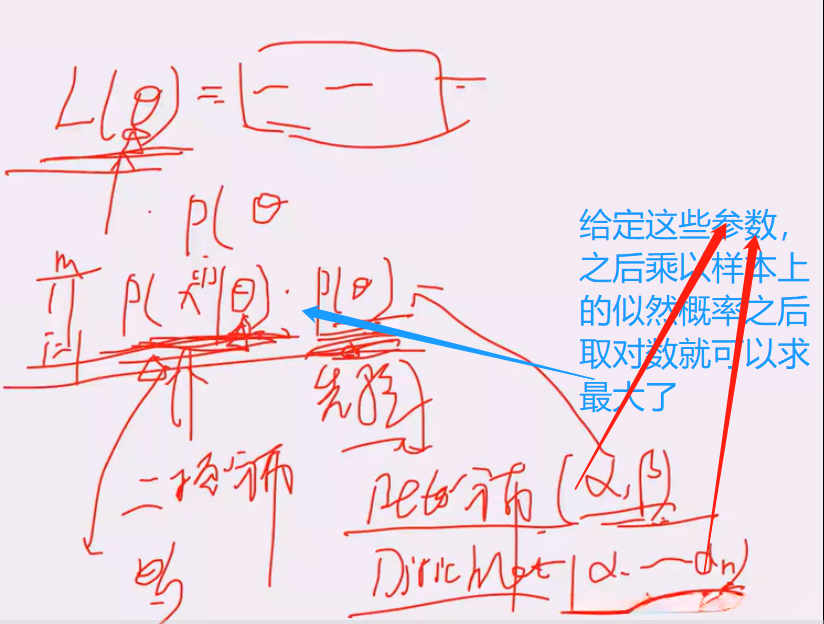 L(θ) =
p(θ
m
∏ p(x⁽ⁱ⁾|θ) · p(θ)
i=1
先验
二项分布
Beta分布 (α, β)
Dirichlet (α. — αn)
给定这些参数，
之后乘以样本上
的似然概率之后
取对数就可以求
最大了